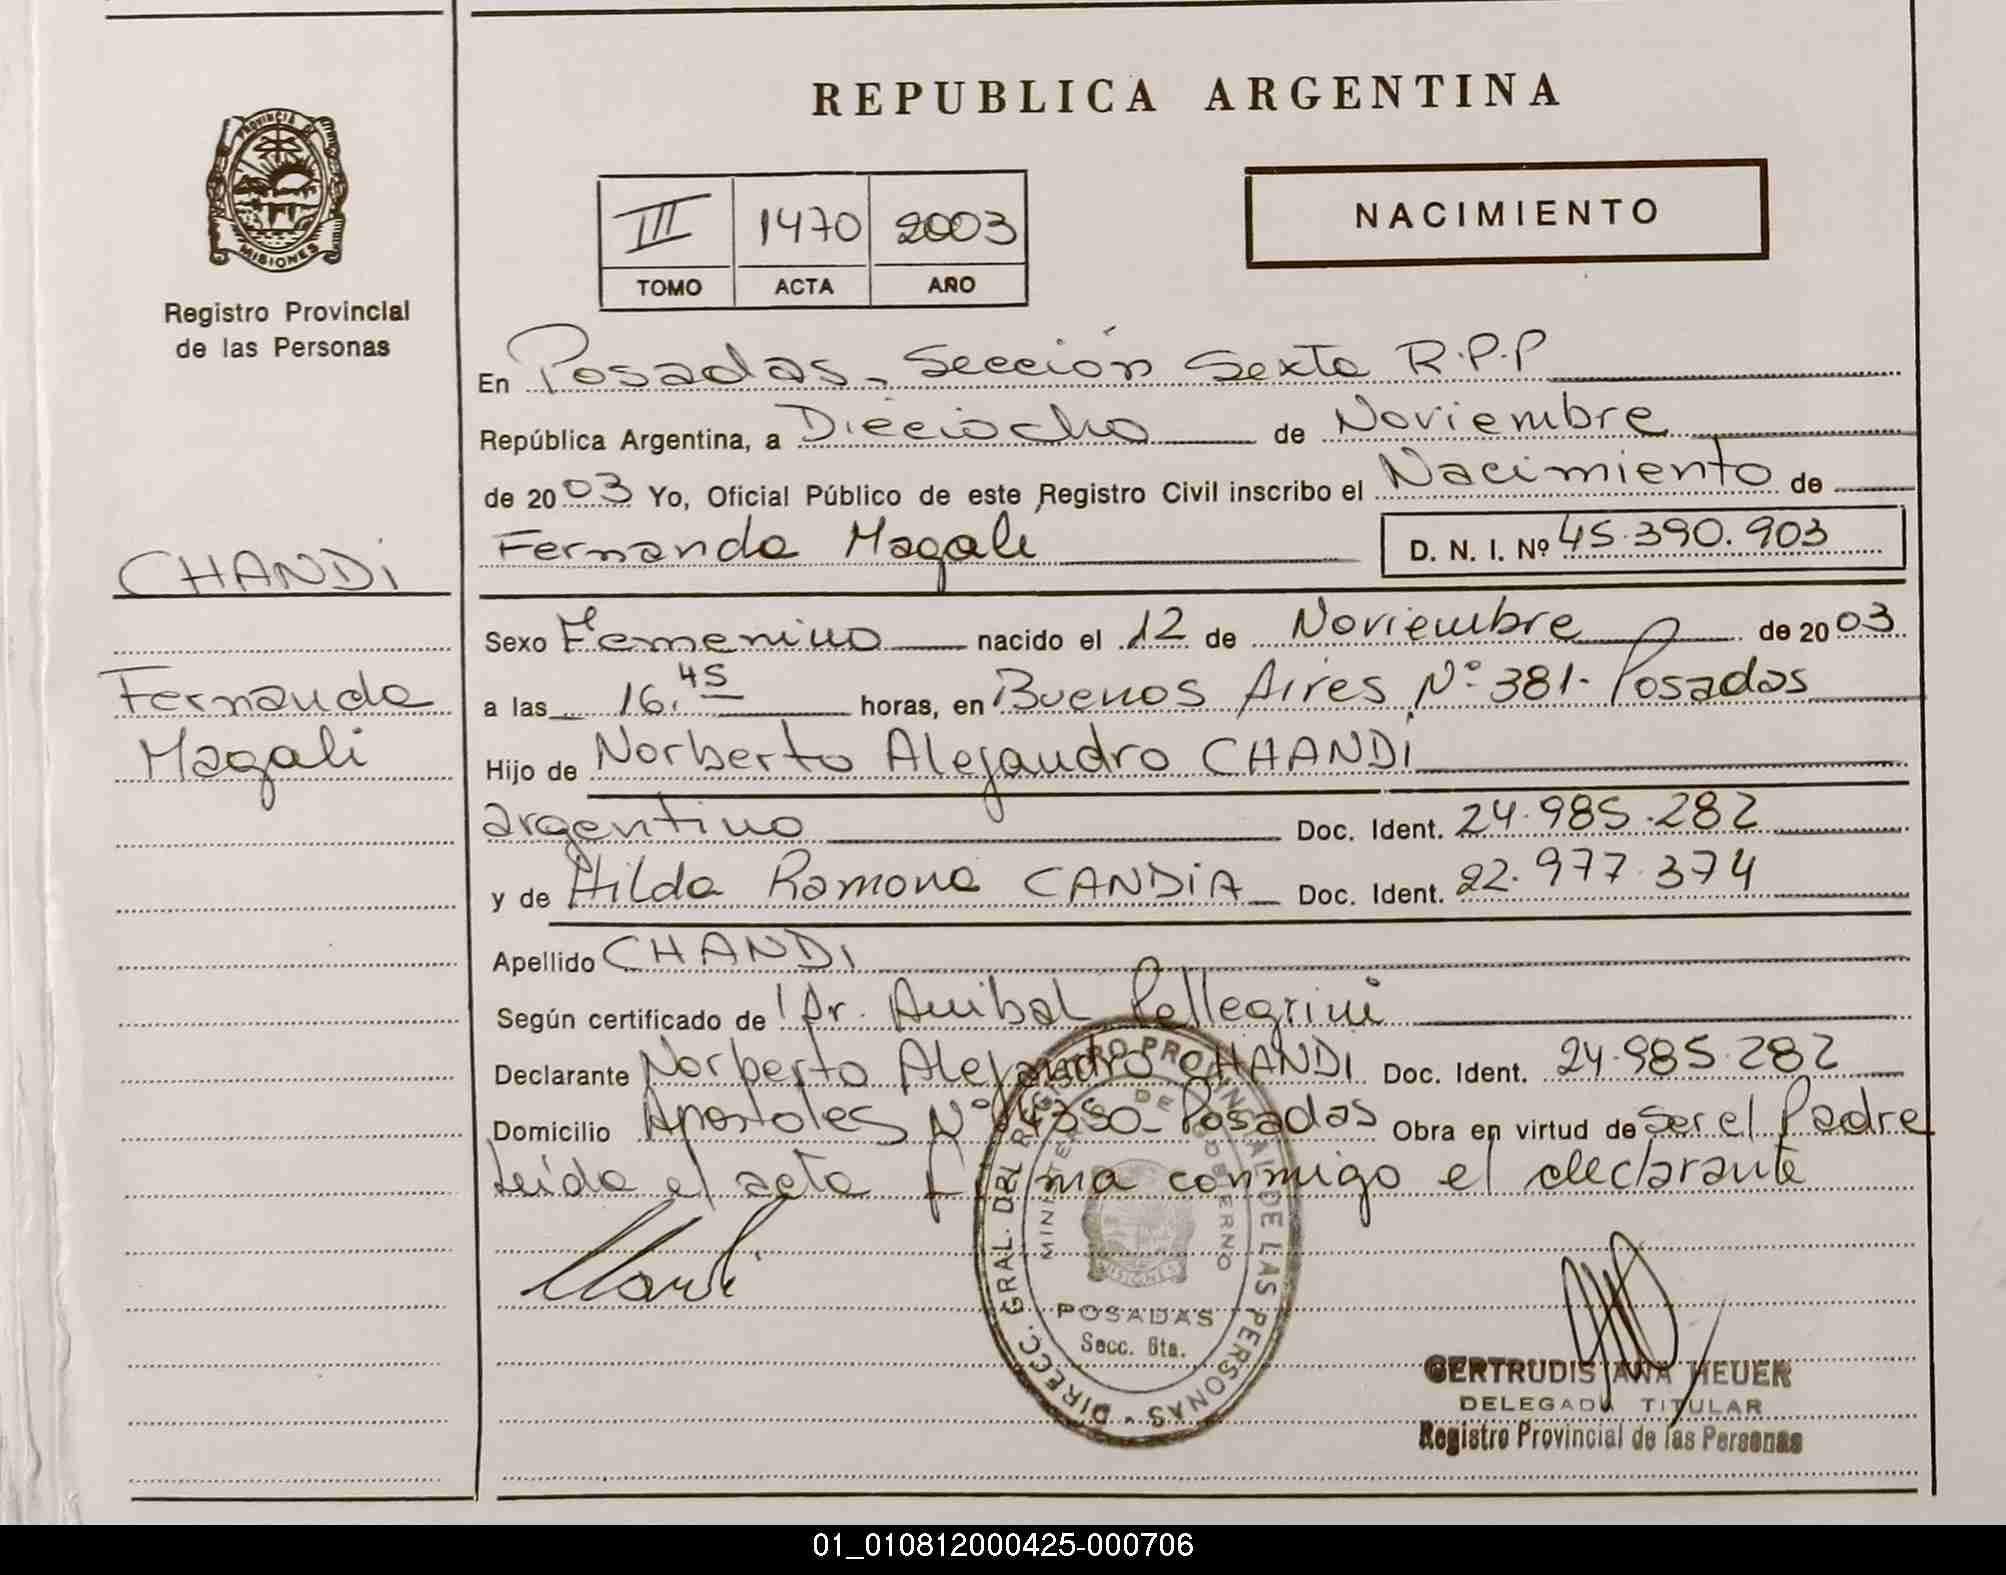 REPUBLICA ARGENTINA
PROVINCIA DE
MISIONES
Registro Provincial
de las Personas
III 1470 2003
TOMO ACTA AÑO
NACIMIENTO
En Posadas - Sección Sexta R.P.P
República Argentina, a Dieciocho de Noviembre
de 2003 Yo, Oficial Público de este Registro Civil inscribo el Nacimiento de
Fernanda Magali D. N. I. Nº 45.390.903
CHANDI
Fernanda
Magali
Sexo Femenino nacido el 12 de Noviembre de 2003
a las 16.45 horas, en Buenos Aires Nº 381- Posadas
Hijo de Norberto Alejandro CHANDI
argentino Doc. Ident. 24.985.282
y de Hilda Ramona CANDIA Doc. Ident. 22.977.374
Apellido CHANDI
Según certificado de Dr. Anibal Pellegrini
Declarante Norberto Alejandro CHANDI Doc. Ident. 24.985.282
Domicilio Apostoles Nº 4350 - Posadas Obra en virtud de Ser el Padre
Leida el acta firma conmigo el declarante
DIRECC. GRAL. DEL REGISTRO PROVINCIAL DE LAS PERSONAS -
MINISTERIO DE GOBIERNO
MISIONES
POSADAS
Secc. 6ta.
GERTRUDIS ANA HEUER
DELEGADA TITULAR
Registro Provincial de las Personas
01_010812000425-000706